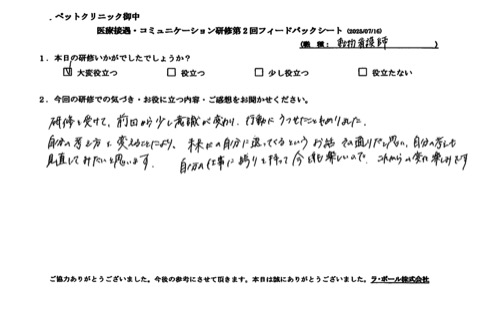 ．ペットクリニック御中
医療接遇・コミュニケーション研修第２回フィードバックシート（2025/07/16）
（職 種： 動物看護師 ）
１．本日の研修いかがでしたでしょうか？
☑ 大変役立つ □ 役立つ □ 少し役立つ □ 役立たない
２．今回の研修での気づき・お役に立つ内容・ご感想をお聞かせください。
研修を受けて、前回から少し意識が変わり、行動にうつせたこともありました。
自分の考え方を変えることにより、未来の自分に返ってくるというお話 その通りだと思い、自分の考えも
見直してみたいと思います。 自分の仕事に誇りを持って今も楽しいので、これからの変化も楽しみです
ご協力ありがとうございました。今後の参考にさせて頂きます。本日は誠にありがとうございました。ラ・ポール株式会社